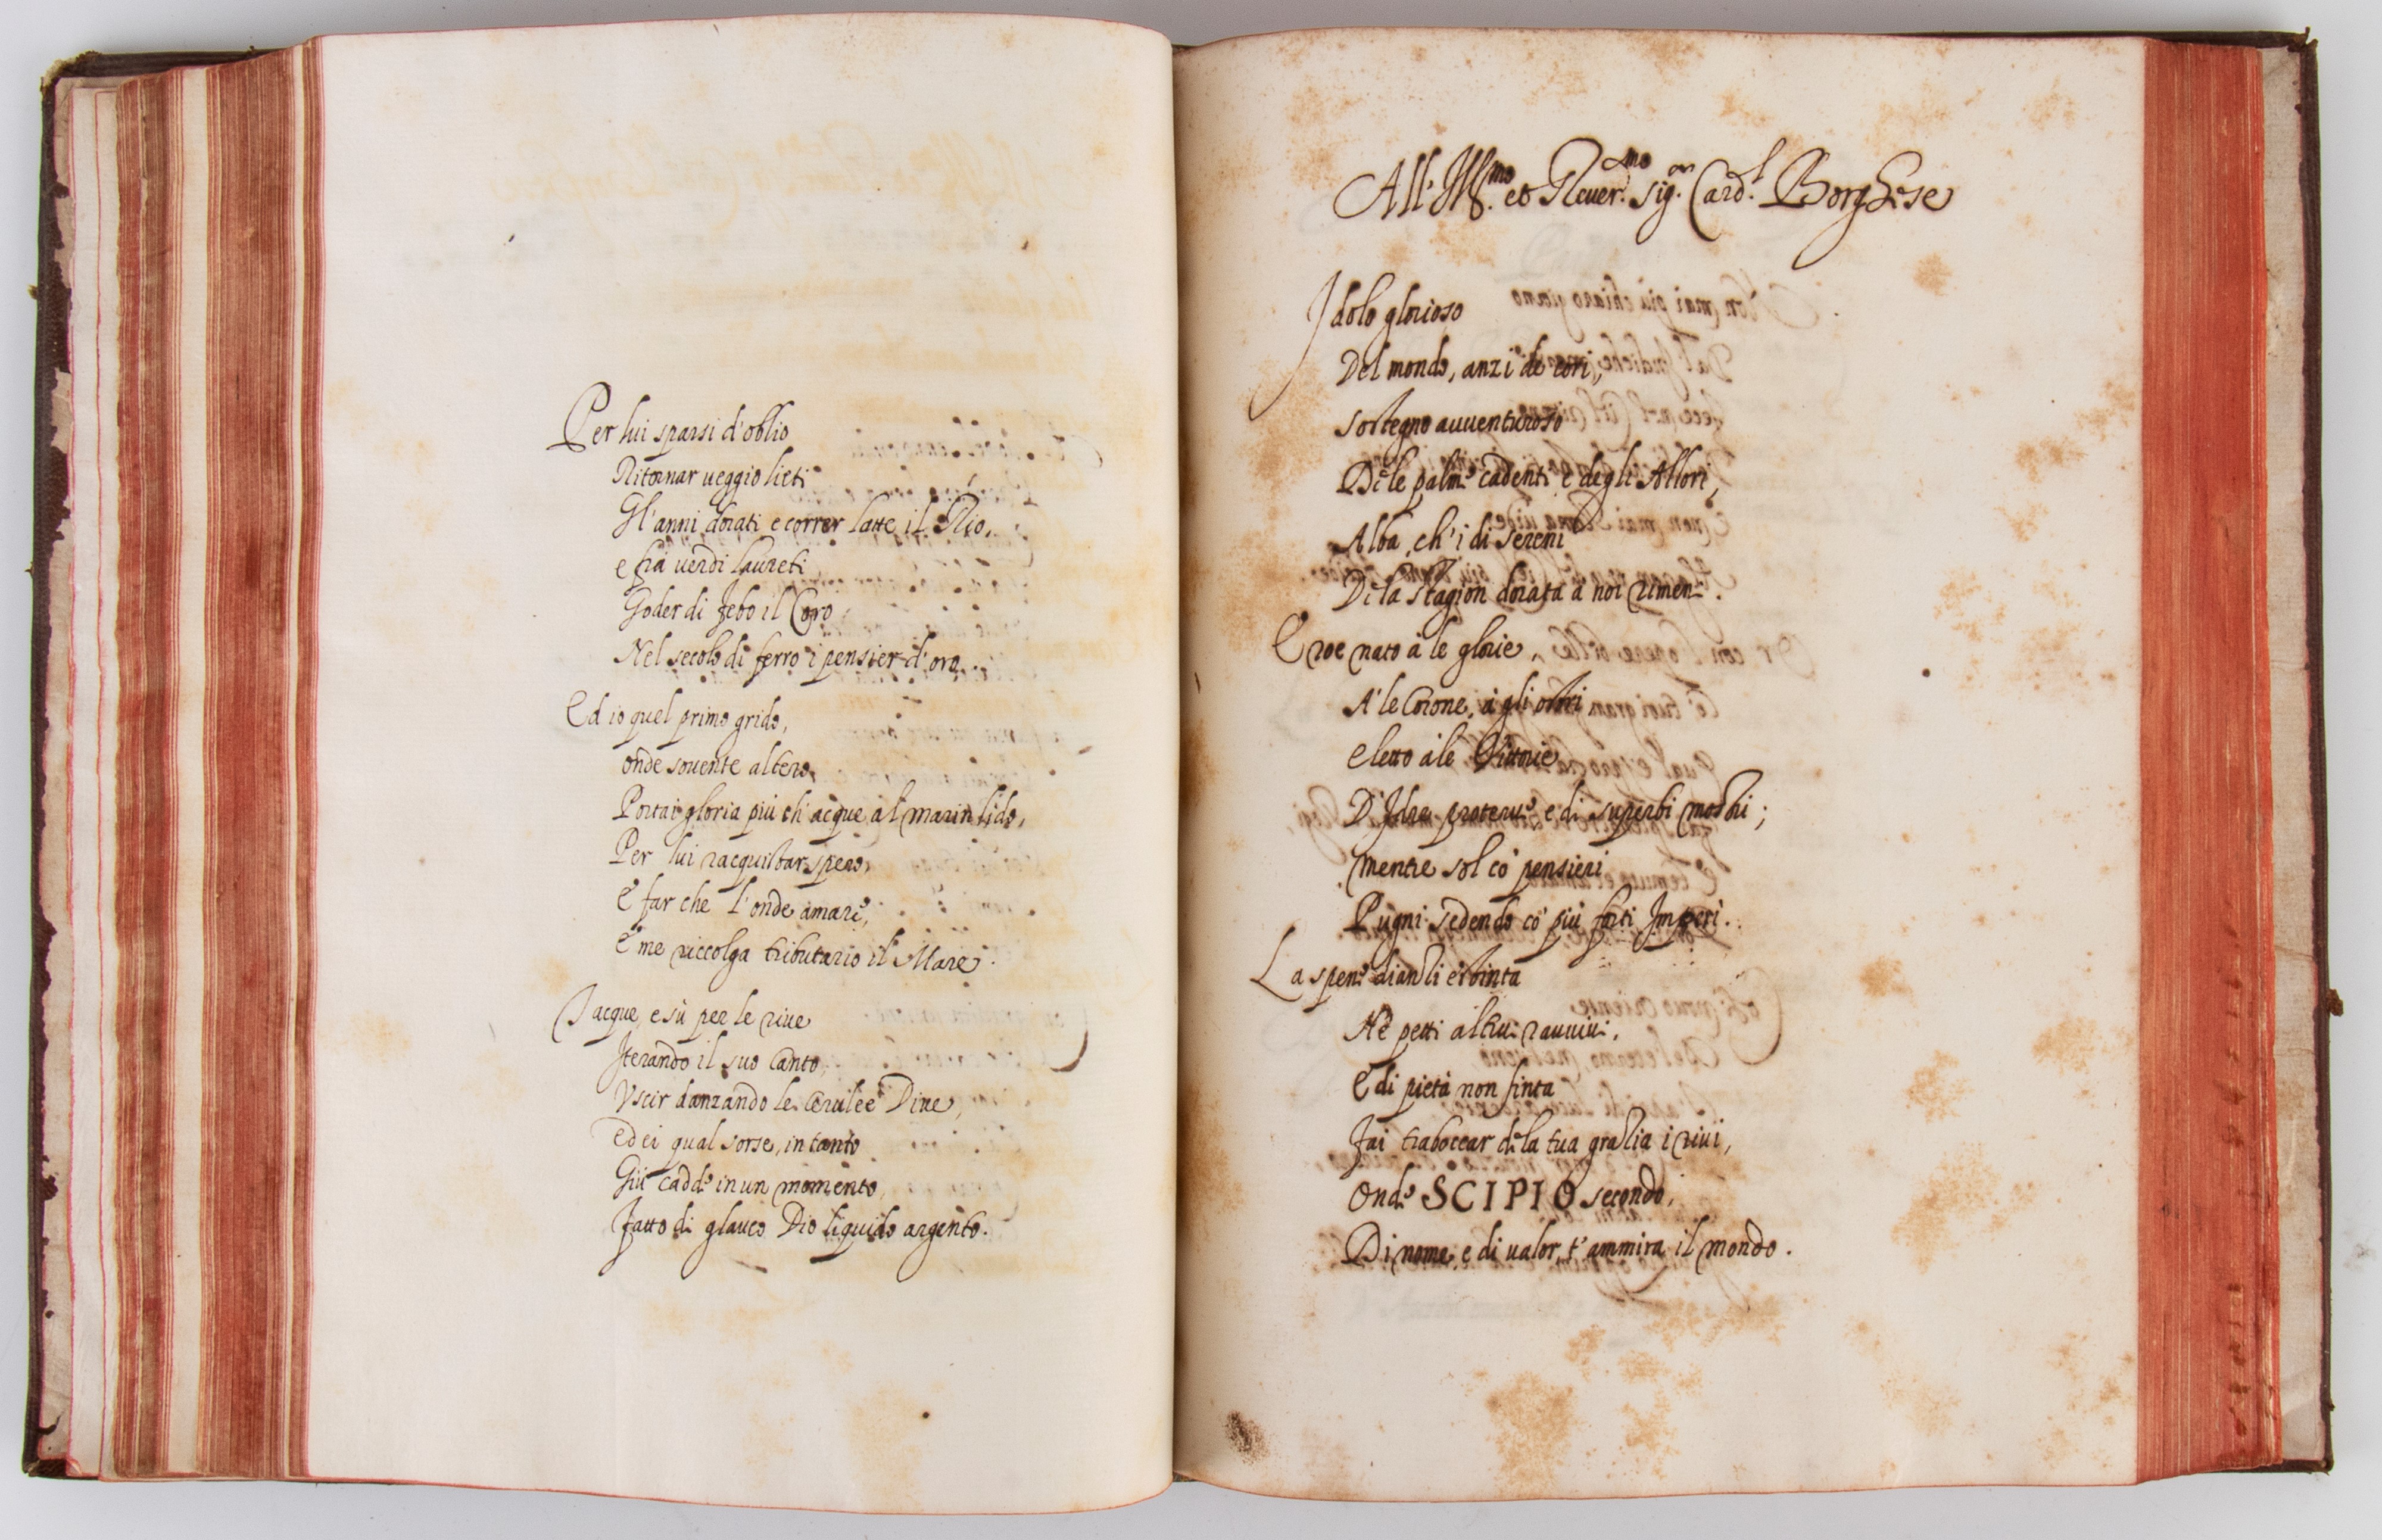 Per lui sparsi d'oblio
Ritornar ueggio lieti
Gl'anni dorati e correr latte il Rio,
e frà uerdi laureti
Goder di Febo il Coro
Nel secolo di ferro i pensier d'oro.
Ed io quel primo grido,
onde souente altero
Portai gloria più ch'acque al marin lido,
Per lui racquistar spero,
E far che l'onde amare,
E me riccolga tributario il Mare.
Tacque, e sù per le riue
Iterando il suo Canto,
Vscir danzando le Cerulee Diue,
ed ei qual sorse, in tanto
Giù cadde in un momento
Fatto di glauco Dio liquido argento.
All' Ill.mo et Reuer.mo Sig.or Card.l Borghese
Idolo glorioso
Del mondo, anzi de cori,
Sostegno auuenturoso
De le palme cadenti e degli Allori,
Alba, ch'i dì sereni
De la Stagion dorata à noi rimeni.
Eroe nato à le glorie,
A' le Corone, à gli ostri
eletto à le Vittorie
D'Idre proterue e di superbi mostri;
mentre sol co' pensieri
Pugni sedendo co' più forti Imperi.
La speme dianzi estinta
Ne' petti altrui rauuiui,
E di pietà non finta
Fai traboccar de la tua grazia i riui,
Onde SCIPIO secondo,
Di nome, e di ualor, t'ammira il mondo.